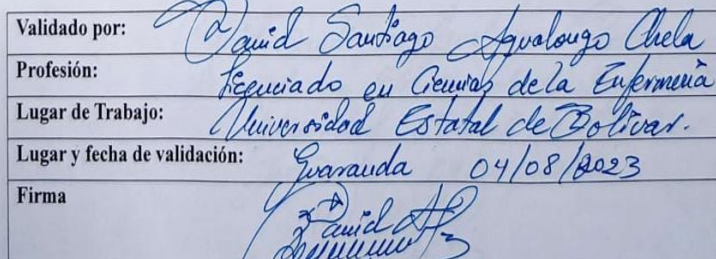 Validado por: David Santiago Agualongo Chela
Profesión: Licenciado en Ciencias de la Enfermería
Lugar de Trabajo: Universidad Estatal de Bolívar.
Lugar y fecha de validación: Guaranda 04/08/2023
Firma David